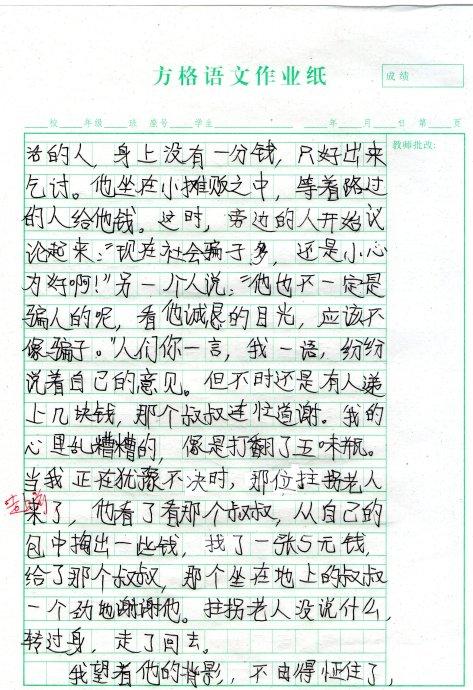 方格语文作业纸
成绩
校 年级 班 座号 学生 年 月 日 第 页
教师批改:
洁的人，身上没有一分钱，只好出来
乞讨。他坐在小摊贩之中，等着路过
的人给他钱。这时，旁边的人开始议
论起来："现在社会骗子多，还是小心
为好啊!"另一个人说："他也不一定是
骗人的呢，看他诚恳的目光，应该不
像骗子。"人们你一言，我一语，纷纷
说着自己的意见。但不时还是有人递
上几块钱，那个叔叔连忙道谢。我的
心里乱糟糟的，像是打翻了五味瓶。
当我正在犹豫不决时，那位拄拐老人
来了，他看了看那个叔叔，从自己的
包中掏出一些钱，找了一张5元钱，
给了那个叔叔，那个坐在地上的叔叔
一个劲地谢谢他。拄拐老人没说什么，
转过身，走了回去。
我望着他的背影，不由得怔住了，